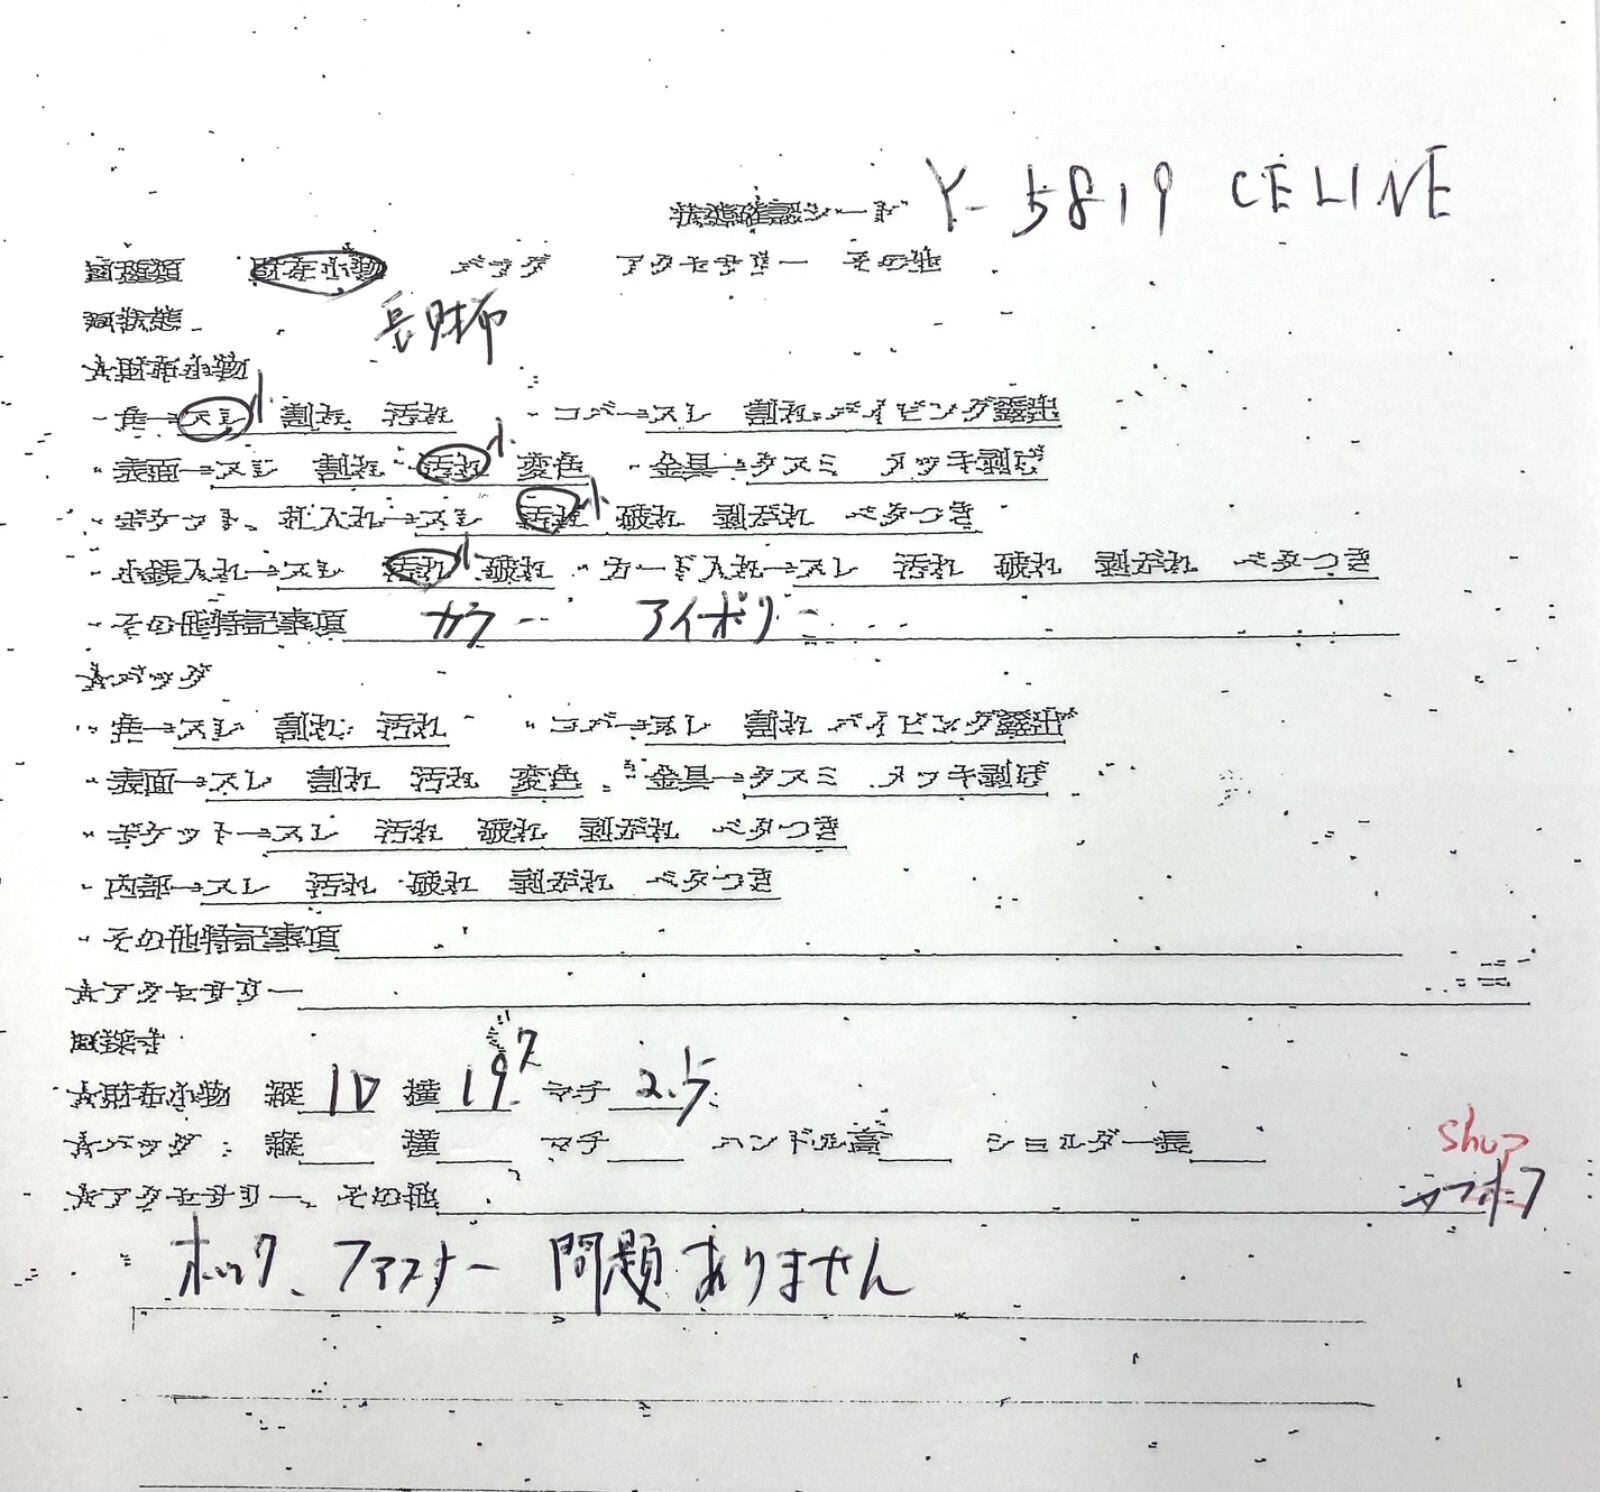 状態確認シート Y-5819 CELINE
■種類 財布小物 バッグ アクセサリー その他
■状態 長財布
☆財布小物
・角→スレ 小 割れ 汚れ ・コバ→スレ 割れ パイピング露出
・表面→スレ 割れ 汚れ 小 変色 ・金具→クスミ メッキ剥げ
・ポケット、札入れ→スレ 汚れ 小 破れ 剥がれ ベタつき
・小銭入れ→スレ 汚れ 小 破れ ・カード入れ→スレ 汚れ 破れ 剥がれ ベタつき
・その他特記事項 カラー アイボリー
☆バッグ
・角→スレ 割れ 汚れ ・コバ→スレ 割れ パイピング露出
・表面→スレ 割れ 汚れ 変色 ・金具→クスミ メッキ剥げ
・ポケット→スレ 汚れ 破れ 剥がれ ベタつき
・内部→スレ 汚れ 破れ 剥がれ ベタつき
・その他特記事項
☆アクセサリー
■採寸
☆財布小物 縦 10 横 19 マチ 2.5
☆バッグ 縦 横 マチ ハンドル高 ショルダー長
shop
☆アクセサリー、その他
ホック、ファスナー 問題ありません